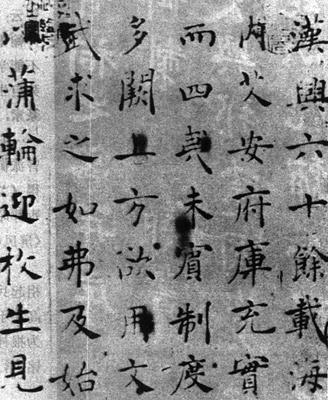 漢興六十餘載海
内艾安府庫充實
而四夷未賓制度
多闕上方欲用文
武求之如弗及始
以蒲輪迎枚生見